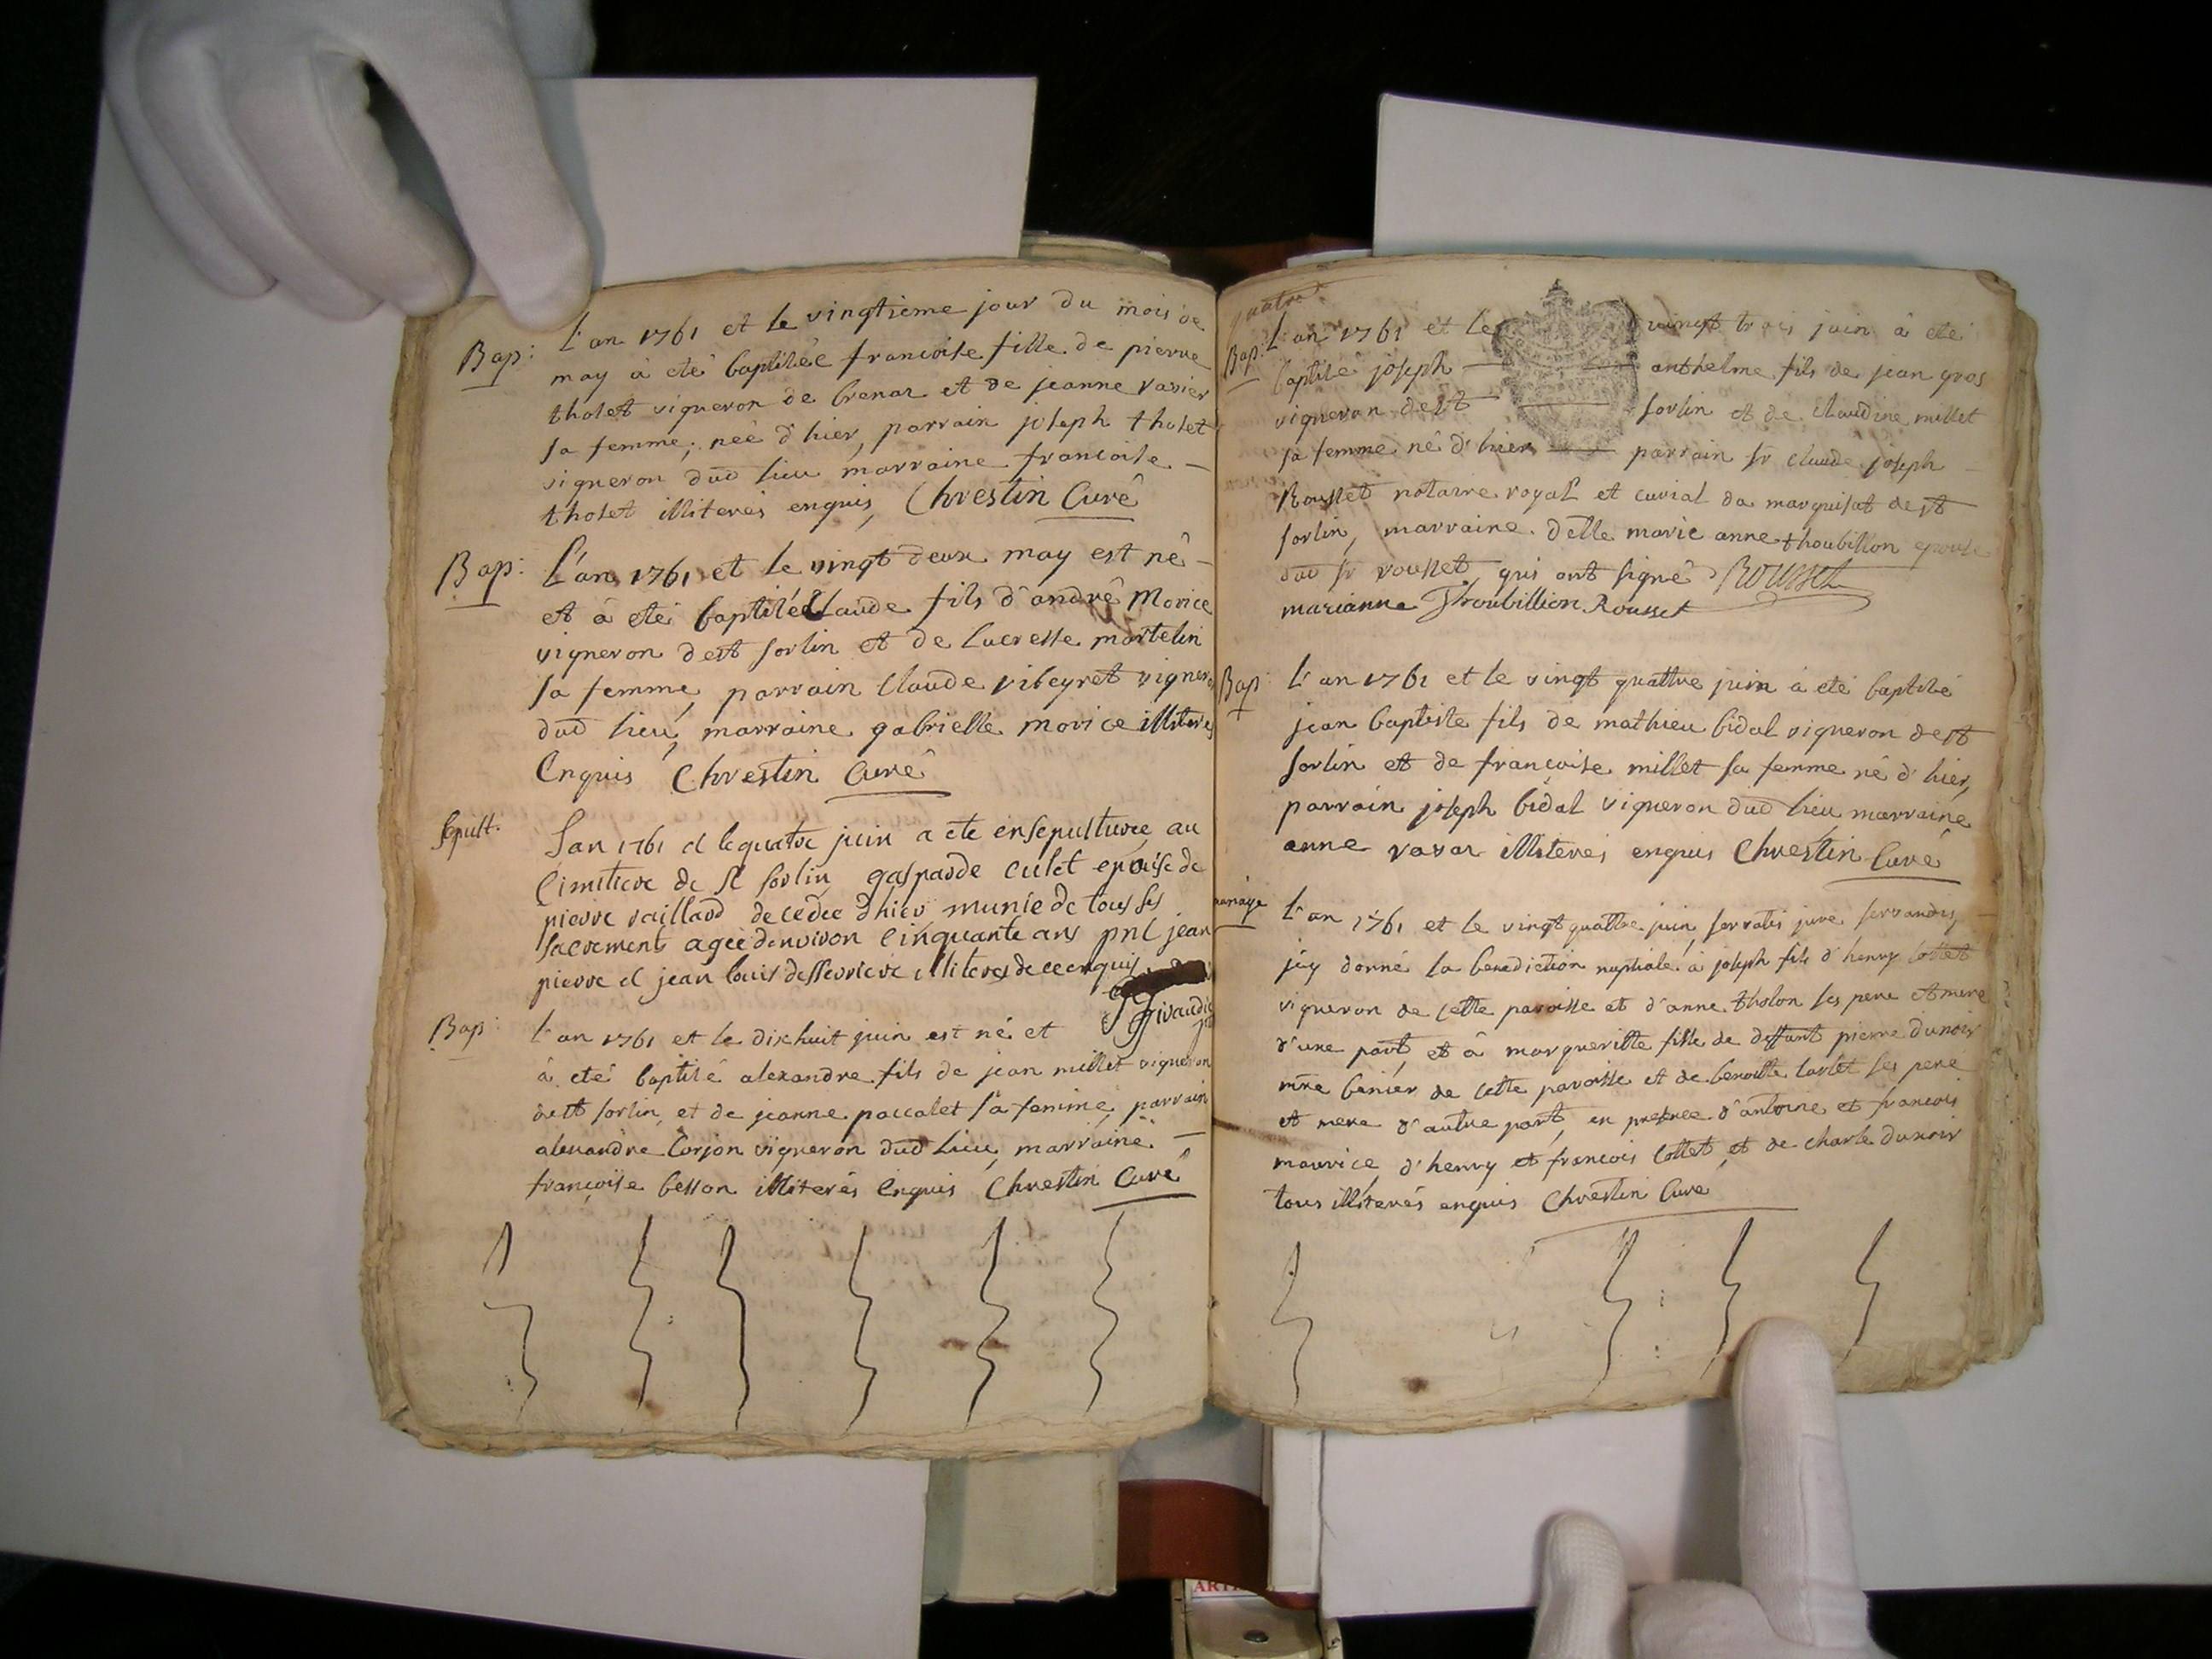 Bap: L'an 1761 et le vingtieme jour du mois de
may à eté baptisée francoise fille de pierre
tholet vigneron de brenaz et de jeanne vassier
sa femme, neé d'hier, parrain joseph tholet
vigneron dud lieu marraine francoise
tholet illiterés enquis, Chrestin Curé
Bap: L'an 1761 et le vingt deux may est né
et à eté baptisé Claude fils d'andré Morice
vigneron de st sorlin et de lucresse martelin
sa femme, parrain Claude vibeyret vigneron
dud lieu, marraine gabrielle morice illiterés
Enquis Chrestin Curé
Sepult. Lan 1761 et le quatre juin a ete ensepulturee au
Cimitiere de st sorlin gasparde culet epouse de
pierre vaillard decedee dhier munie de tous ses
sacrements agee denviron cinquante ans pnt jean
pierre et jean louis desseuriere illiteres de ce enquis
Bap: L'an 1761 et le dixhuit juin est né et
à eté baptisé alexandre fils de jean millet vigneron
de st sorlin, et de jeanne paccalet sa femme, parrain
alexandre Corjon vigneron dud lieu, marraine
françoise besson illiterés Enquis Chrestin Curé
quatre
Bap: L'an 1761 et le vingt trois juin à eté
baptisé joseph anthelme fils de jean gros
vigneron de st sorlin et de Claudine millet
sa femme né d'hier parrain sr Claude joseph
Rousset notaire royal et curial du marquisat de st
sorlin, marraine delle marie anne thoubillon epouse
dud sr rousset, qui ont signé Rousset
marianne Throubillion Rousset
Bap: L'an 1761 et le vingt quattre juin à eté baptisé
jean baptiste fils de mathieu bidal vigneron de st
sorlin et de françoise millet sa femme né d'hier,
parrain joseph bidal vigneron dud lieu marraine
anne ravar illiterés enquis Chrestin Curé
mariage L'an 1761 et le vingt quattre juin, servatis jure servandis,
j'ay donné la benediction nuptiale à joseph fils d'henry Cottet
vigneron de cette paroisse et d'anne tholon ses pere et mere
d'une part, et à margueritte fille de deffunt pierre dunoir
mre benier de cette paroisse et de benoitte Carlet ses pere
et mere d'autre part, en presnce d'antoine et francois
maurice, d'henry et francois Cottet, et de charle dunoir
tous illiterés enquis Chrestin Curé